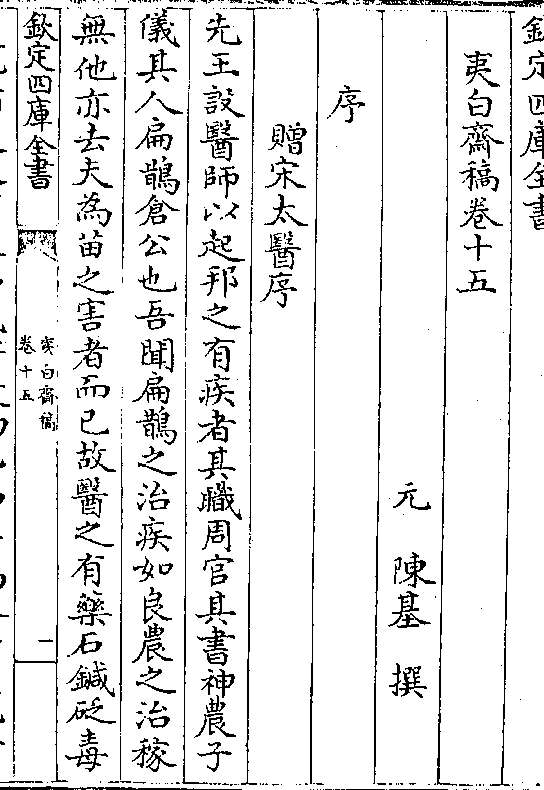 欽定四庫全書
夷白齋稿卷十五
元　陳基　撰
序
贈宋太醫序
先王設醫師以起邦之有疾者其職周官其書神農子
儀其人扁鵲倉公也吾聞扁鵲之治疾如良農之治稼
無他亦去夫為苗之害者而已故醫之有藥石鍼砭毒
欽定四庫全書
夷白齋稿
卷十五
一